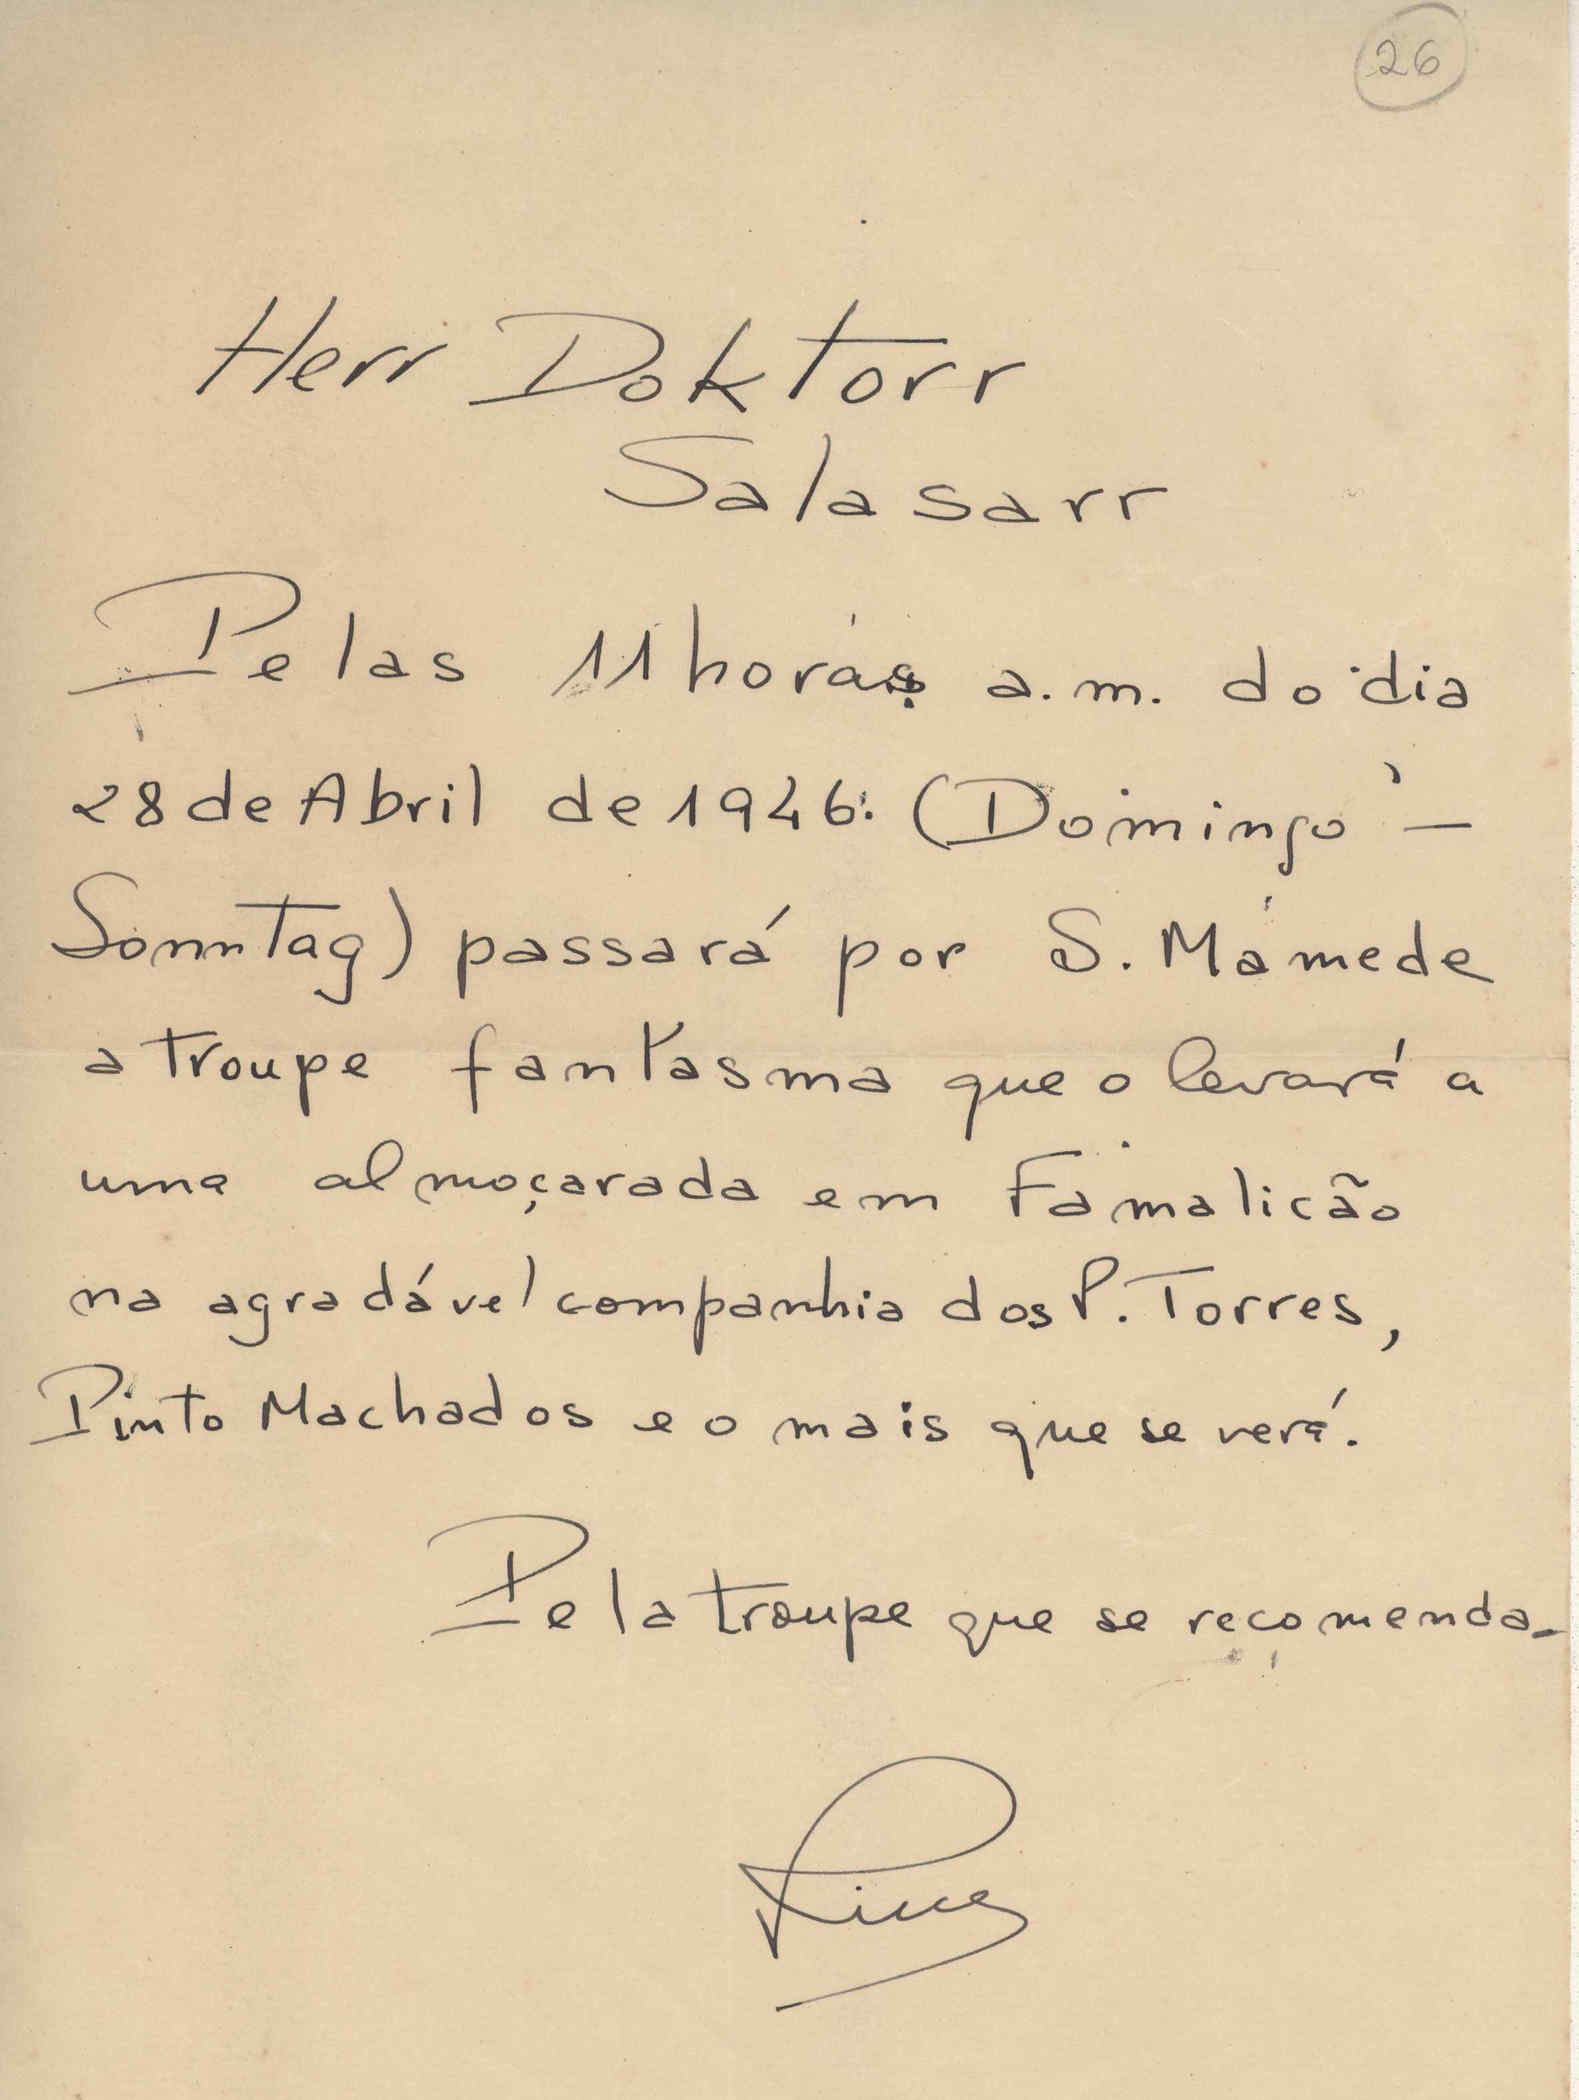 26
Herr Doktorr
Salasarr
Pelas 11 horas a.m. do dia
28 de Abril de 1946. (Domingo —
Sonntag) passará por S. Mamede
a troupe fantasma que o levará a
uma almoçarada em Famalicão
na agradável companhia dos P. Torres,
Pinto Machados e o mais que se verá.
Pela troupe que se recomenda